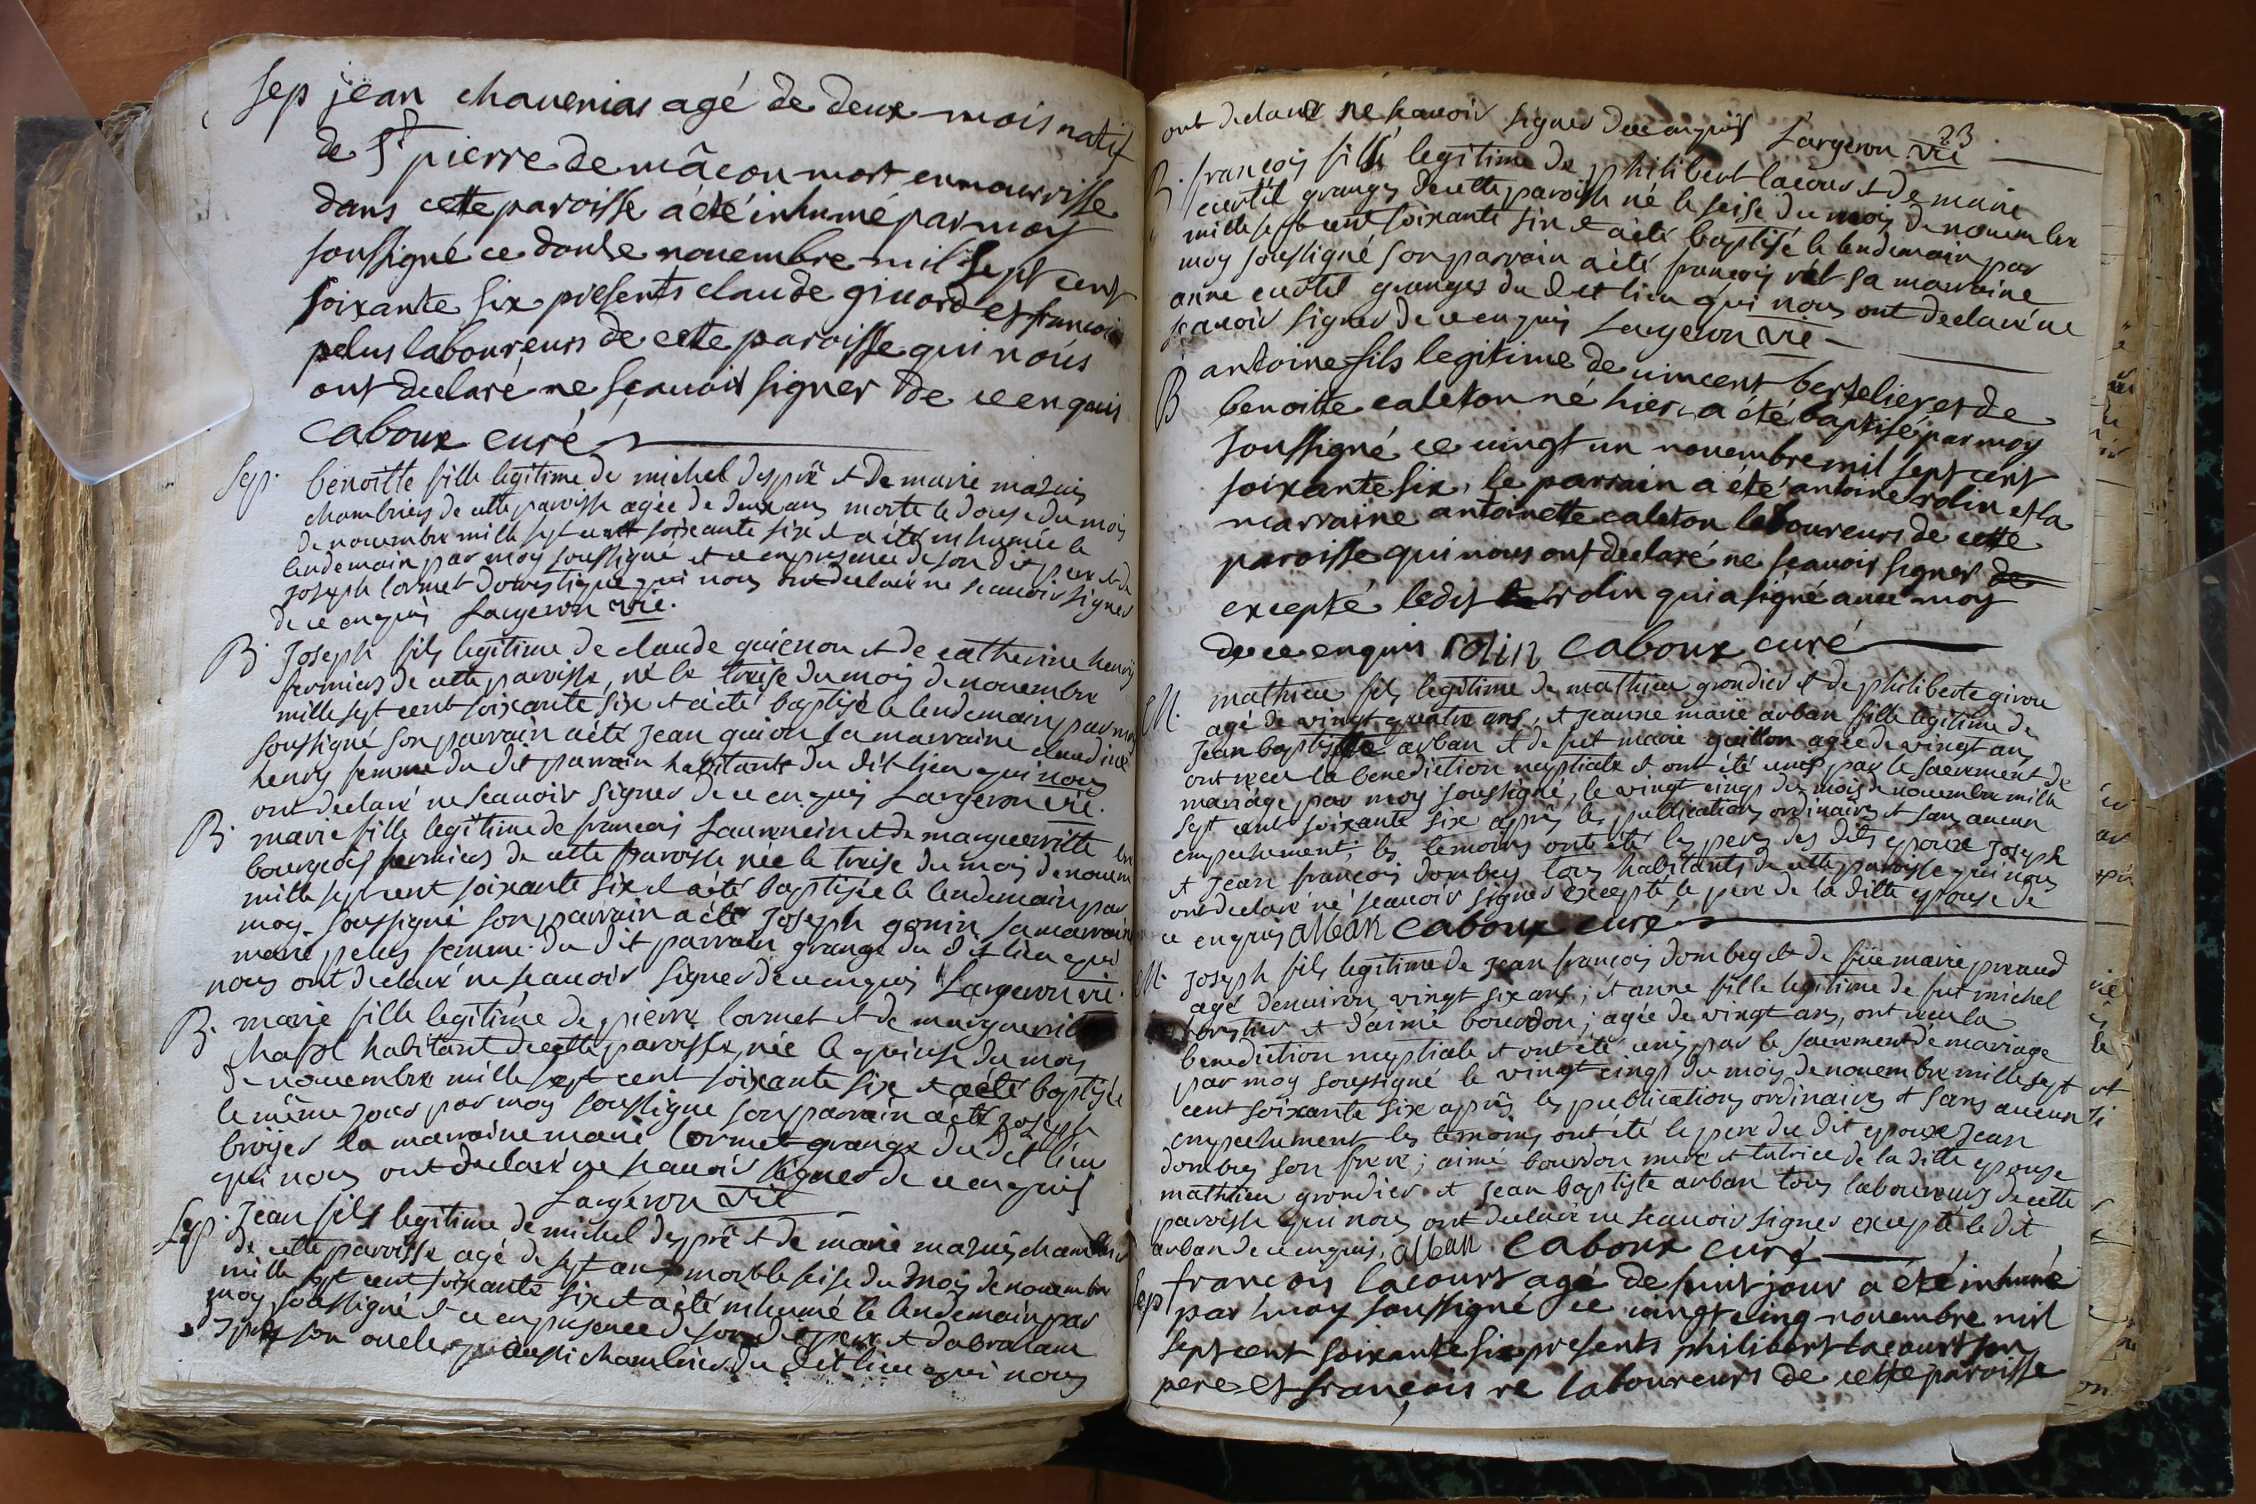 sep jean chavenias agé de deux mois natif
de St pierre de mâcon mort en nourrisse
dans cette paroisse a été inhumé par moy
soussigné ce douze novembre mil sept cent
soixante six presents claude givord et francois
pelus laboureurs de cette paroisse qui nous
ont declaré ne sçavoir signer de ce enquis
caboux curé
sep. benoitte fille legitime de michel despré et de marie mazuis
chambriers de cette paroisse agée de deux ans morte le douse du mois
de novembre mille sept cent soixante six et a été inhumée le
lendemain par moy soussigné et ce en presence de son dit pere et de
joseph lormet domestique qui nous ont declaré ne scavoir signer
de ce enquis Largeron vic.
B. Joseph fils legitime de claude guienon et de catherine henry
fermiers de cette paroisse, né le treise du mois de novembre
mille sept cent soixante six et a été baptisé le lendemain par moy
soussigné son parrain a été jean guion sa marraine claudine
henry femme du dit parrain habitants du dit lieu qui nous
ont declaré ne scavoir signer de ce enquis Largeron vic.
B. marie fille legitime de francois saunnein et de marguerritte
bourgeois fermiers de cette paroisse née le treise du mois de novem bre
mille sept cent soixante six et a été baptisée le lendemain par
moy soussigné son parrain a été joseph gonin sa marraine
marie pelus femme du dit parrain granger du dit lieu qui
nous ont declaré ne scavoir signer de ce enquis Largeron vic.
B. marie fille legitime de pierre lormet et de marguerritte
habitant de cette paroisse, née le quinse du mois
de novembre mille sept cent soixante six et a été baptisée
le même jour par moy soussigné son parrain a été joseph
broyer la marraine marie Cormet granger du dit lieu
qui nous ont declaré ne scavoir signer de ce enquis
Largeron vic
Sep. Jean fils legitime de michel despré et de marie mazuis chambriers
de cette paroisse agé de sept ans mort le seise du mois de novembre
mille sept cent soixante six et a été inhumé le lendemain par
moy soussigné et ce en presence de son dit pere et d'abraham
son oncle aussi chambrier du dit lieu qui nous
23
ont declaré ne scavoir signer de ce enquis Largeron vic
B. francois fils legitime de philibert lacour et de marie
curtil granger de cette paroisse né le seise du mois de novembre
mille sept cent soixante six et a été baptisé le lendemain par
moy soussigné son parrain a été francois ret sa marraine
anne curtil granges du dit lieu qui nous ont declaré ne
scavoir signer de ce enquis Largeron vic
B antoine fils legitime de vincent bertelier et de
benoitte caleton né hier a été baptisé par moy
soussigné ce vingt un novembre mil sept cent
soixante six, le parrain a été antoine rolin et la
marraine antoinette caleton laboureurs de cette
paroisse qui nous ont declaré ne scavoir signer de
excepté ledit rolin qui a signé avec moy
de ce enquis rolin caboux curé
M. mathieu fils legitime de mathieu grondier et de philiberte girou
agé de vingt quatre ans, et jeanne marie arban fille legitime de
jean baptiste arban et de fut marie guillon agée de vingt ans
ont recu la benediction nuptiale et ont été unis par le sacrement de
mariage, par moy soussigné, le vingt cinq du mois de novembre mille
sept cent soixante six après les publications ordinaires et sans aucun
empechement; les temoins ont été les peres des dits epoux joseph
et jean francois dombey tous habitants de cette paroisse qui nous
ont declaré ne scavoir signer excepté le pere de la ditte epouse de
ce enquis arban caboux curé
M. joseph fils legitime de jean francois dombey et de füe marie piraud
agé denviron vingt six ans; et anne fille legitime de fut michel
et d'aimé bourdon; agée de vingt ans, ont recu la
benediction nuptiale et ont été unis par le sacrement de mariage
par moy soussigné le vingt cinq du mois de novembre mille sept
cent soixante six après les publications ordinaires et sans aucun
empechement les temoins ont été le pere du dit epoux jean
dombey son frere; aimé bourdon mere et tutrice de la ditte epouse
mathieu grondier et jean baptiste arban tous laboureurs de cette
paroisse qui nous ont declaré ne scavoir signer excepté le dit
arban de ce enquis, arban caboux curé
sep francois lacour agé de huit jour a été inhumé
par moy soussigné ce vingt cinq novembre mil
sept cent soixante six presents philibert lacourt son
pere et francois re laboureurs de cette paroisse